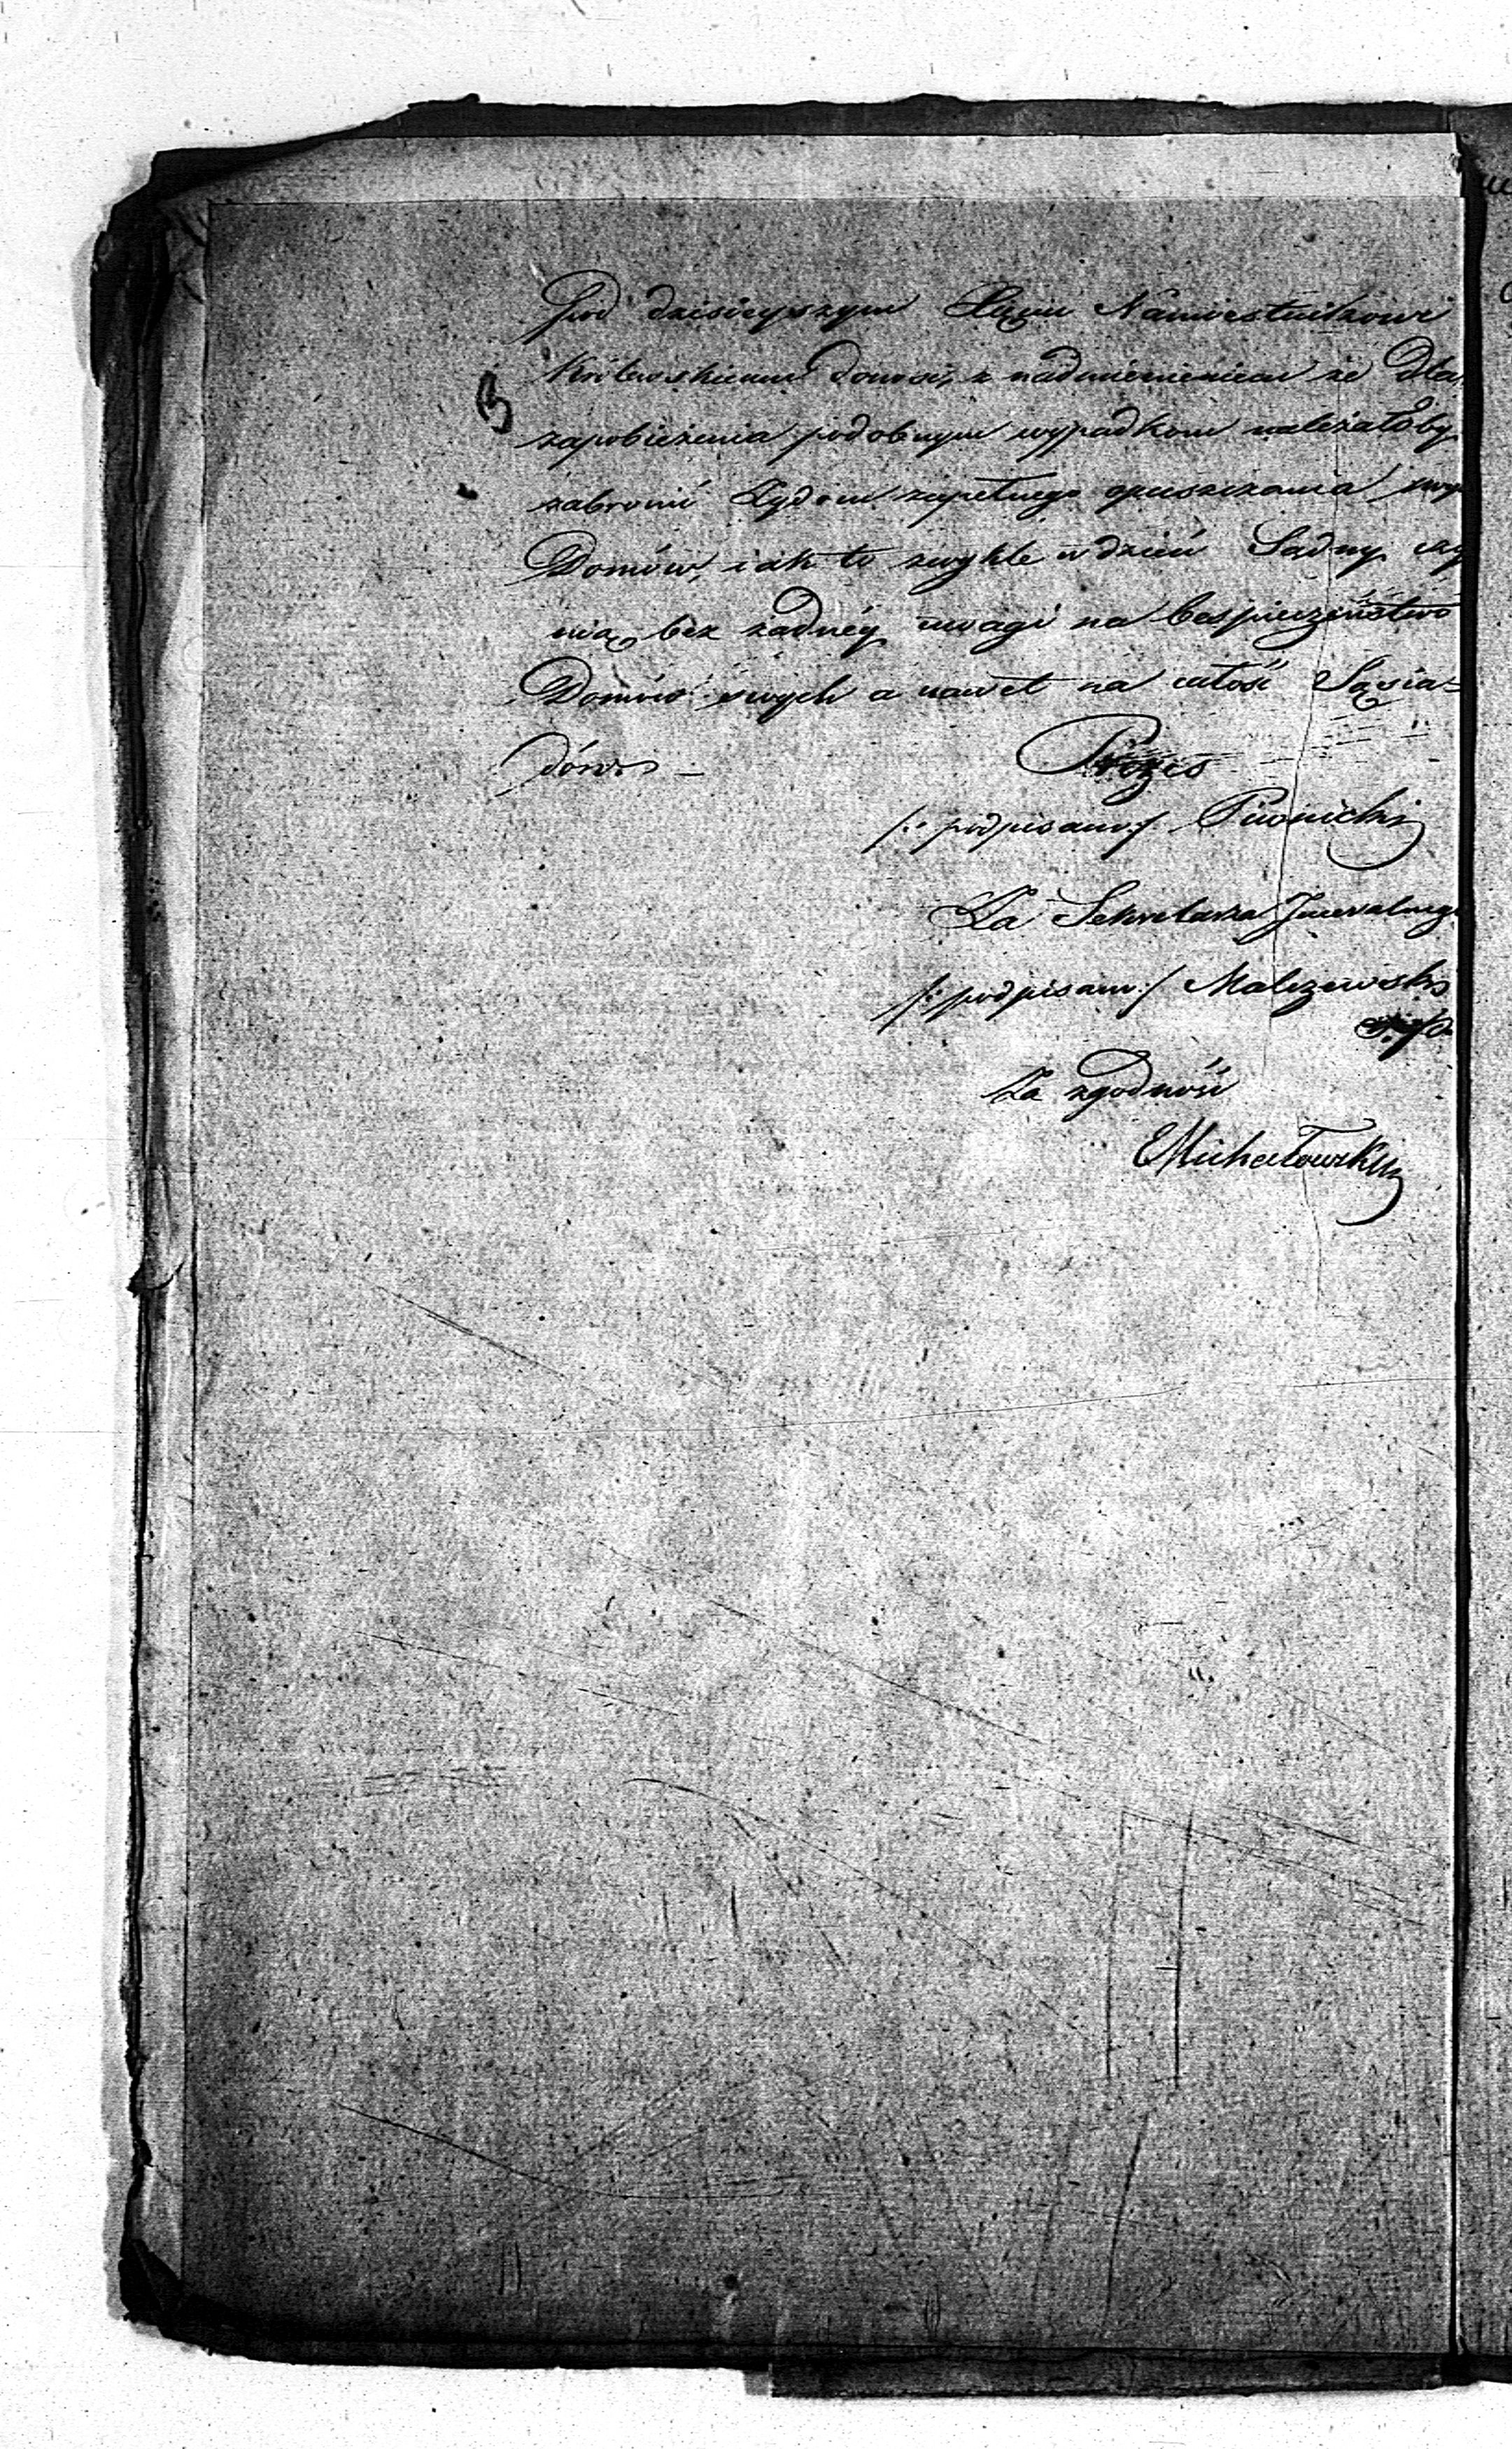 Pod dzisieyszym Xięciu Namiestnikowi
Królewskiemu donosi, z nadmienieniem że dla
zapobieżenia podobnym wypadkom należałoby
zabronić Żydom zupełnego opuszczania swy
Domów, iak to zwykle w dzień Sądny czy
nią, bez żadnéy uwagi na bespieczeństwo
Domów swych a nawet na całość Sąsia=
dów. –
Prezes
/: podpisano :/ Piwnicki
Za Sekretarza Jneralnego
/: podpisano :/ Malczewski
Za zgodność
Michałowski